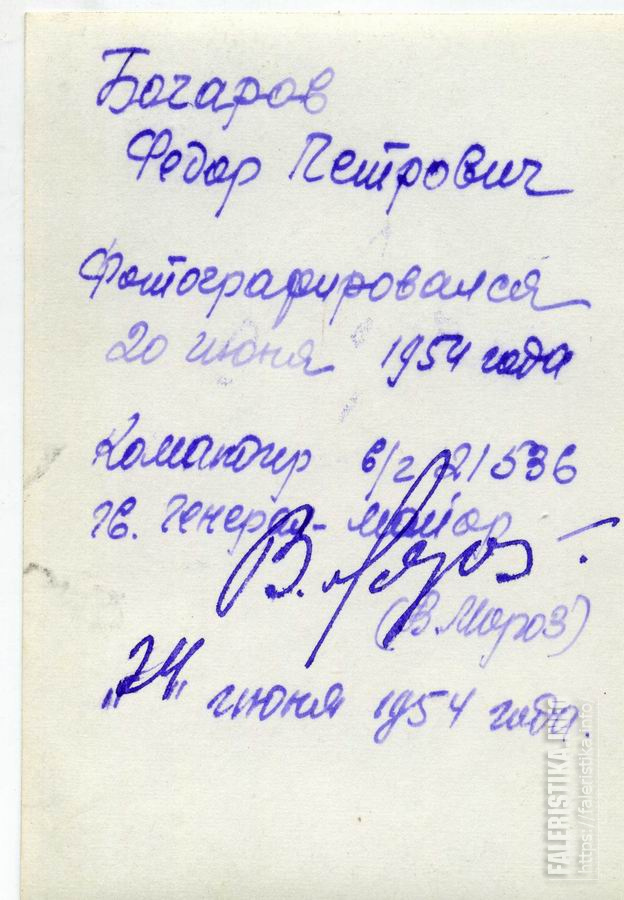 Бочаров
Федор Петрович
Фотографировался
20 июня 1954 года
Командир в/ч 21536
гв. генерал-майор
В. Мороз
(В. Мороз)
"24" июня 1954 года.
FALERISTIKA.INFO
https://faleristika.info